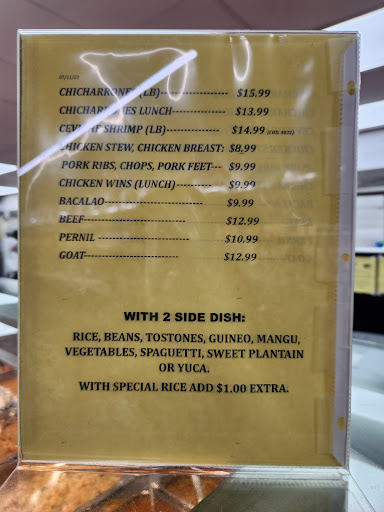 07/11/23
CHICHARRONES (LB)----------------- $15.99
CHICHARRONES LUNCH-------------- $13.99
CEVICHE SHRIMP (LB)-------------- $14.99
CHICKEN STEW, CHICKEN BREAST: $8,99
PORK RIBS, CHOPS, PORK FEET--- $9.99
CHICKEN WINS (LUNCH)---------- $9.99
BACALAO-------------------------- $9.99
BEEF------------------------------- $12.99
PERNIL ------------------------ $10.99
GOAT------------------------------ $12.99
WITH 2 SIDE DISH:
RICE, BEANS, TOSTONES, GUINEO, MANGU,
VEGETABLES, SPAGUETTI, SWEET PLANTAIN
OR YUCA.
WITH SPECIAL RICE ADD $1.00 EXTRA.